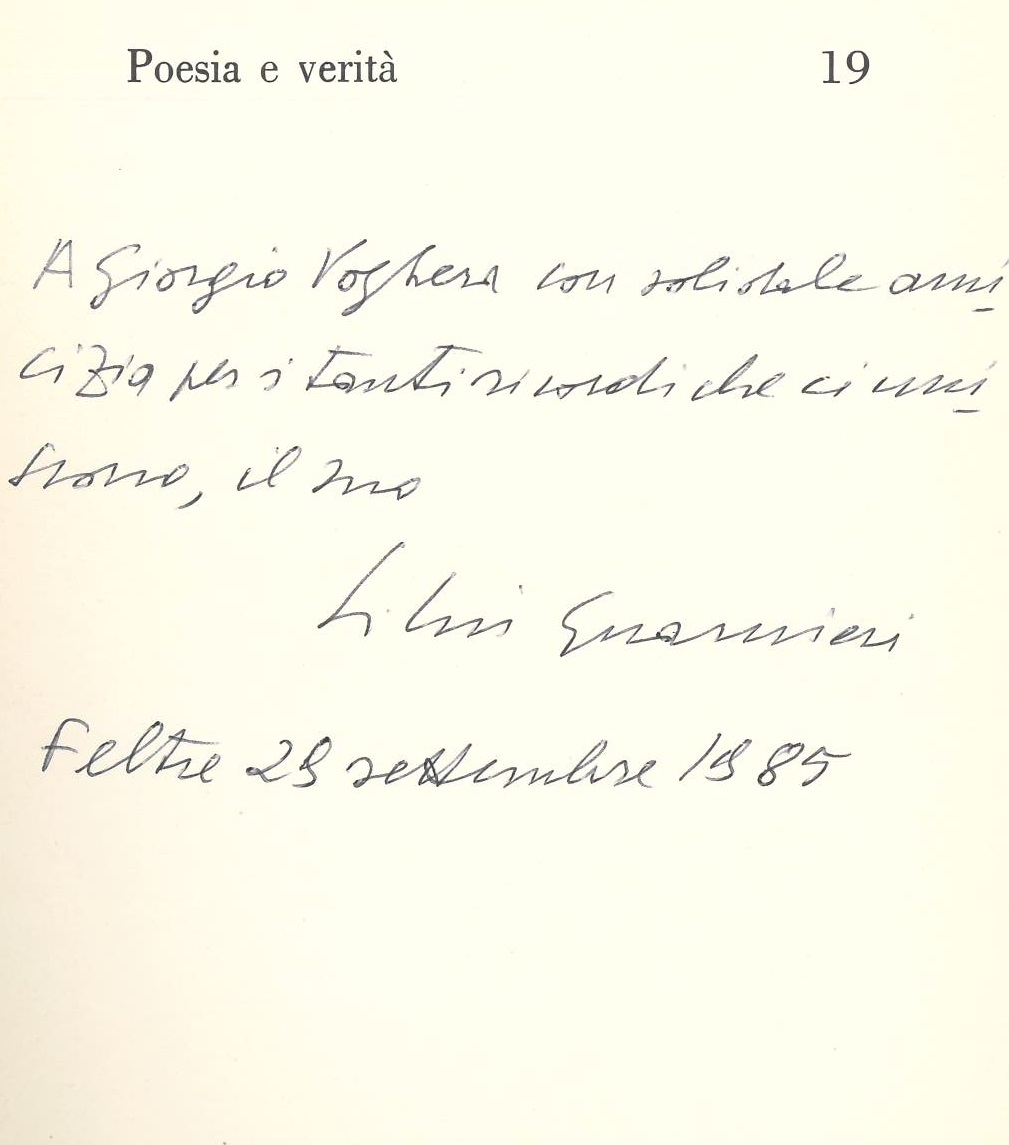 Poesia e verità 19
A Giorgio Voghera con solidale ami
cizia per i tanti ricordi che ci uni
scono, il suo
Silvio Guarnieri
Feltre 29 settembre 1985